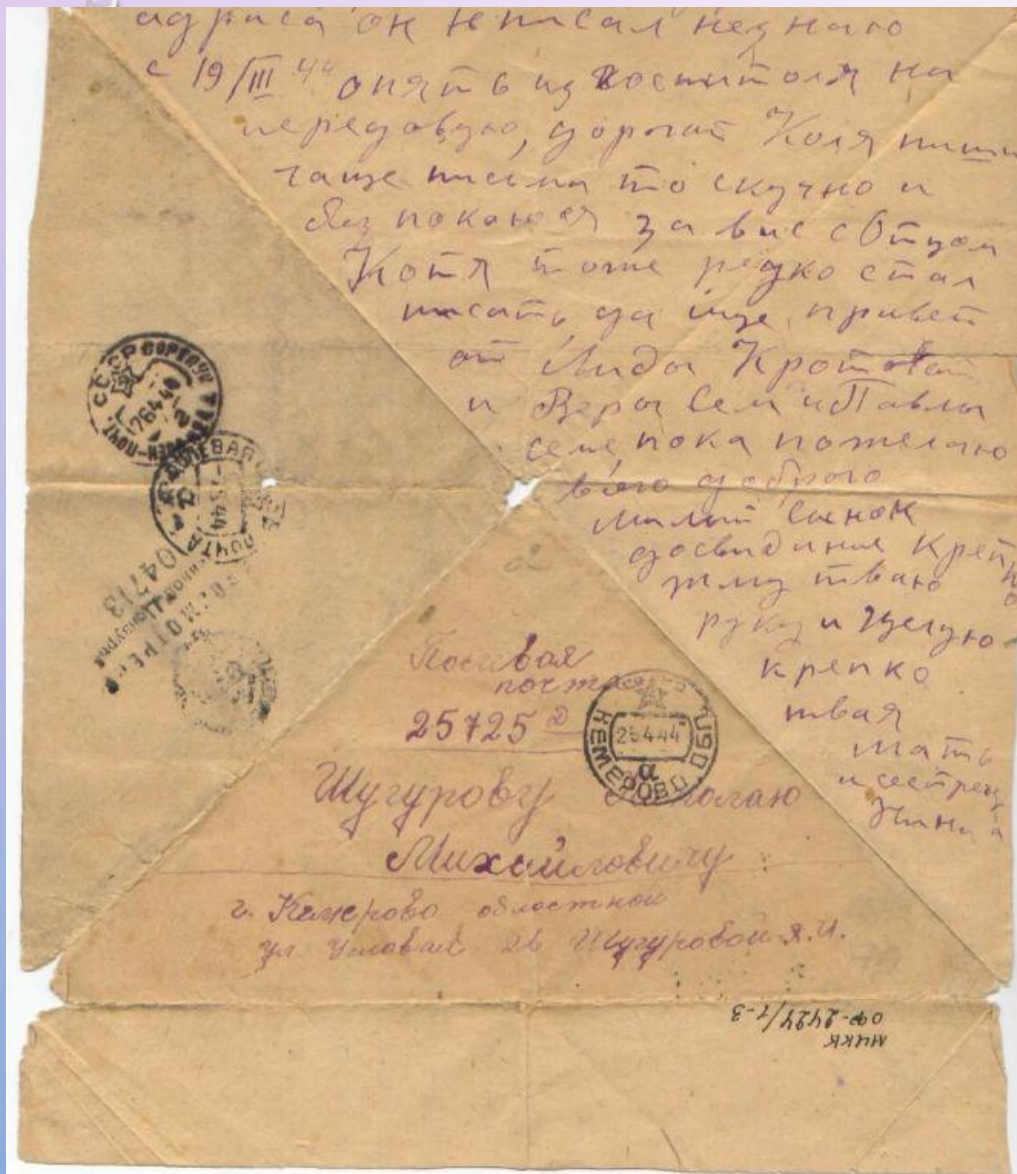 адриса он не писал незнаю
с 19/III 44 опять из госпиталя на
передовую, дорогой Коля пиши
чаще писма то скучно и
без покоюся за вас с Отцом
Котя тоже редко стал
писать да ище привет
от Лиды Кротовой
и Веры Сем и Павлы
семе, пока пожелаю
всего доброго
милый сынок
досвидиния Крепко
жму тваю
руку и целую
крепко
твая
мать
и сестрен
СССР
26 4 44
ПОЛЕВАЯ ПОЧТА
44
ПРОСМОТРЕНО
Военной Цензурой
04713
Полевая
почта
25725 Д
КЕМЕРОВО ОБЛ
25 4 44
а
Шугурову Николаю
Михайловичу
г. Кемерово областной
ул Угловая 26 Шугуровой Я.И.
МИКК
ОФ-2424/1-3